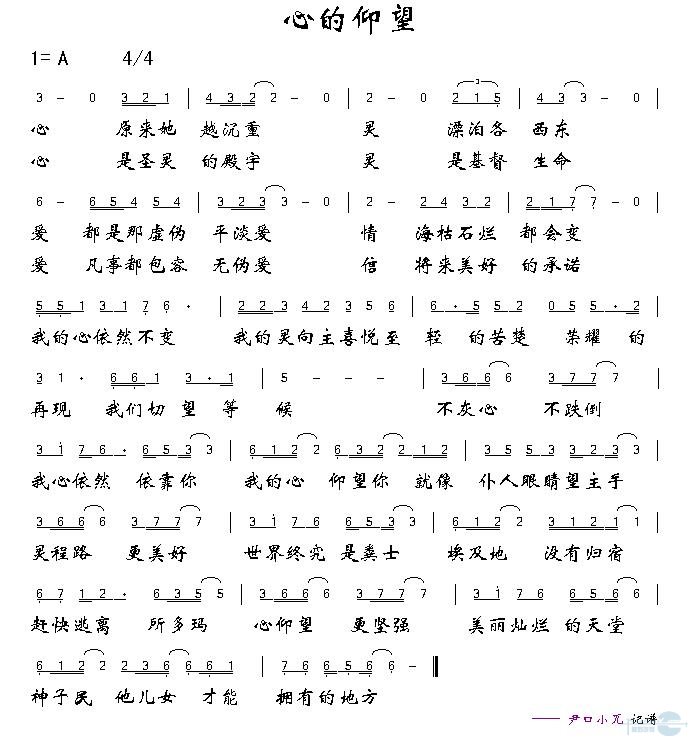 心的仰望
1= A 4/4
3 - 0 3 2 1 | 4 3 2 2 - 0 | 2 - 0 2 1 5 | 4 3 3 - 0 |
心 原来她 越沉重 灵 漂泊各 西东
心 是圣灵 的殿宇 灵 是基督 生命
6 - 6 5 4 5 4 | 3 2 3 3 - 0 | 2 - 2 4 3 2 | 2 1 7 7 - 0 |
爱 都是那虚伪 平淡爱 情 海枯石烂 都会变
爱 凡事都包容 无伪爱 信 将来美好 的承诺
5 5 1 3 1 7 6 · | 2 2 3 4 2 3 5 6 | 6 · 5 5 2 0 5 5 · 2 |
我的心依然不变 我的灵向主喜悦至 轻 的苦楚 荣耀 的
3 1 · 6 6 1 3 · 1 | 5 - - | 3 6 6 6 3 7 7 7 |
再现 我们切 望 等 候 不灰心 不跌倒
3 1 7 6 · 6 5 3 3 | 6 1 2 2 6 3 2 2 1 2 | 3 5 5 3 3 2 3 3 |
我心依然 依靠你 我的心 仰望你 就像 仆人眼睛望主手
3 6 6 6 3 7 7 7 | 3 1 7 6 6 5 3 3 | 6 1 2 2 3 2 1 1 |
灵程路 更美好 世界终究 是粪土 埃及地 没有归宿
6 7 1 2 · 6 3 5 5 | 3 6 6 6 3 7 7 7 | 3 1 7 6 6 5 6 6 |
赶快逃离 所多玛 心仰望 更坚强 美丽灿烂 的天堂
6 1 2 2 1 2 6 6 1 | 7 6 6 5 6 6 -
神子民 他儿女 才能 拥有的地方
—— 尹口小兀 记谱